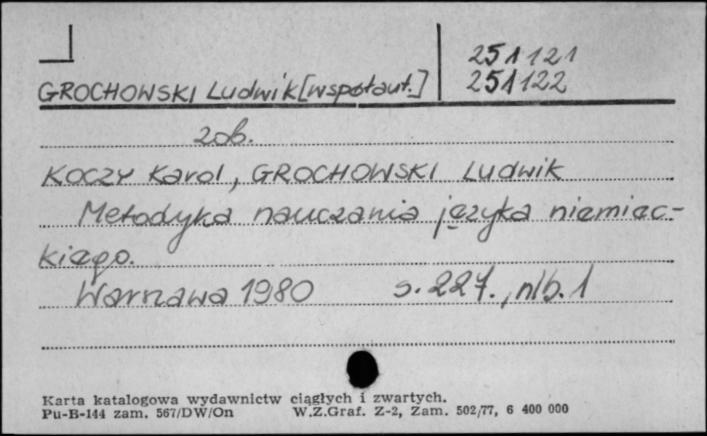 251121
GROCHOWSKI Ludwik [współaut.]
251122
zob.
KOCZY Karol, GROCHOWSKI Ludwik
Metodyka nauczania języka niemiec-
kiego.
Warszawa 1980 s. 227., nlb. 1
Karta katalogowa wydawnictw ciągłych i zwartych.
Pu-B-144 zam. 567/DW/On W.Z.Graf. Z-2, Zam. 502/77, 6 400 000